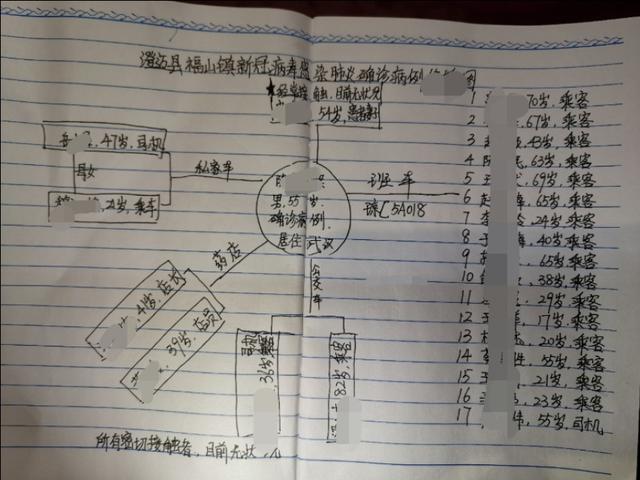 澄迈县福山镇新冠病毒感染肺炎确诊病例
★经常接触,目前无状况
54岁,患者妻子
47岁,司机
母女
21岁,乘车
私家车
男,55岁
确诊病例
居住 武汉
班车
琼C5A018
药店
41岁,店员
39岁,店员
公交车
司机
36岁
82岁,乘客
1 70岁,乘客
2 67岁,乘客
3 43岁,乘客
4 63岁,乘客
5 69岁,乘客
6 65岁,乘客
7 24岁,乘客
8 40岁,乘客
9 65岁,乘客
10 38岁,乘客
11 29岁,乘客
12 17岁,乘客
13 20岁,乘客
14 55岁,乘客
15 21岁,乘客
16 23岁,乘客
17 55岁,司机
所有密切接触者,目前无状况